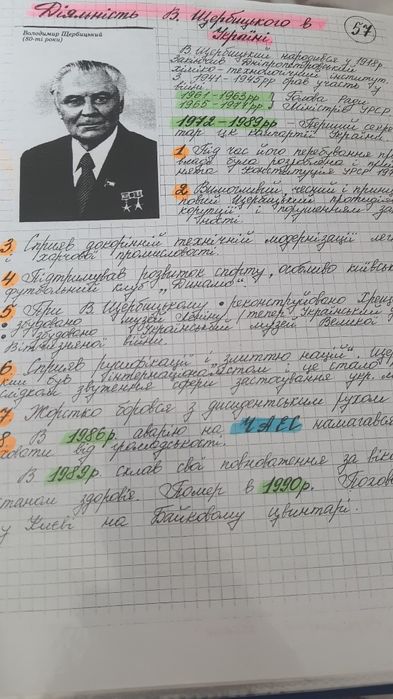 Діяльність В. Щербицького в
Україні.
57
Володимир Щербицький
(80-ті роки)
В. Щербицький народився у 1918р.
Закінчив Дніпропетровський
хіміко-технологічний інститут.
З 1941-1945р брав участь у
війні.
1961-1963рр
1965-1972рр
Голова Ради
Міністрів УРСР
1972-1989рр - Перший секре-
тар ЦК компартії України.
1. Під час його перебування при
владі була розроблена і
Конституція УРСР
2. Вимогливий, чесний і
Щербицький
корупції і порушенням
3. Сприяв докорінній технічній модернізації
і харчової промисловості.
4 Підтримував розвиток спорту, особливо
футбольний клуб "Динамо".
5. При В. Щербицькому • реконструйовано
• збудовано музей Леніну / тепер Український
• збудовано Український музей Великої
Вітчизняної війни.
6. Сприяв русифікації і злиттю націй.
був інтернаціоналістом і це стало
звуження сфери застосування укр.
7 Жорстко боровся з дисидентським рухом
8 В 1986р. аварію на ЧАЕС намагався
від громадськості.
В 1989р. склав свої повноваження за
станом здоров'я. Помер в 1990р.
у Києві на Байковому цвинтарі.